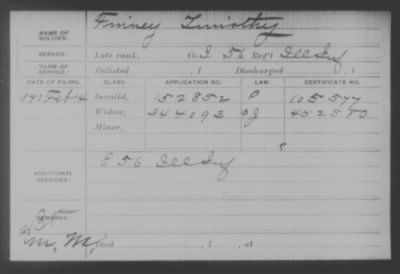 NAME OF SOLDIER: Finney Timothy
SERVICE: Late rank, Co. I, 56 Reg't Ill Inf
TERM OF SERVICE: Enlisted , 1 Discharged , 1
DATE OF FILING. CLASS. APPLICATION NO. LAW. CERTIFICATE NO.
1870 Feb 14 Invalid, 152852 105577
Widow, 344093 452580
Minor,
ADDITIONAL SERVICES: E 56 Ill Inf
REMARKS:
M. M. Died , 1 , at